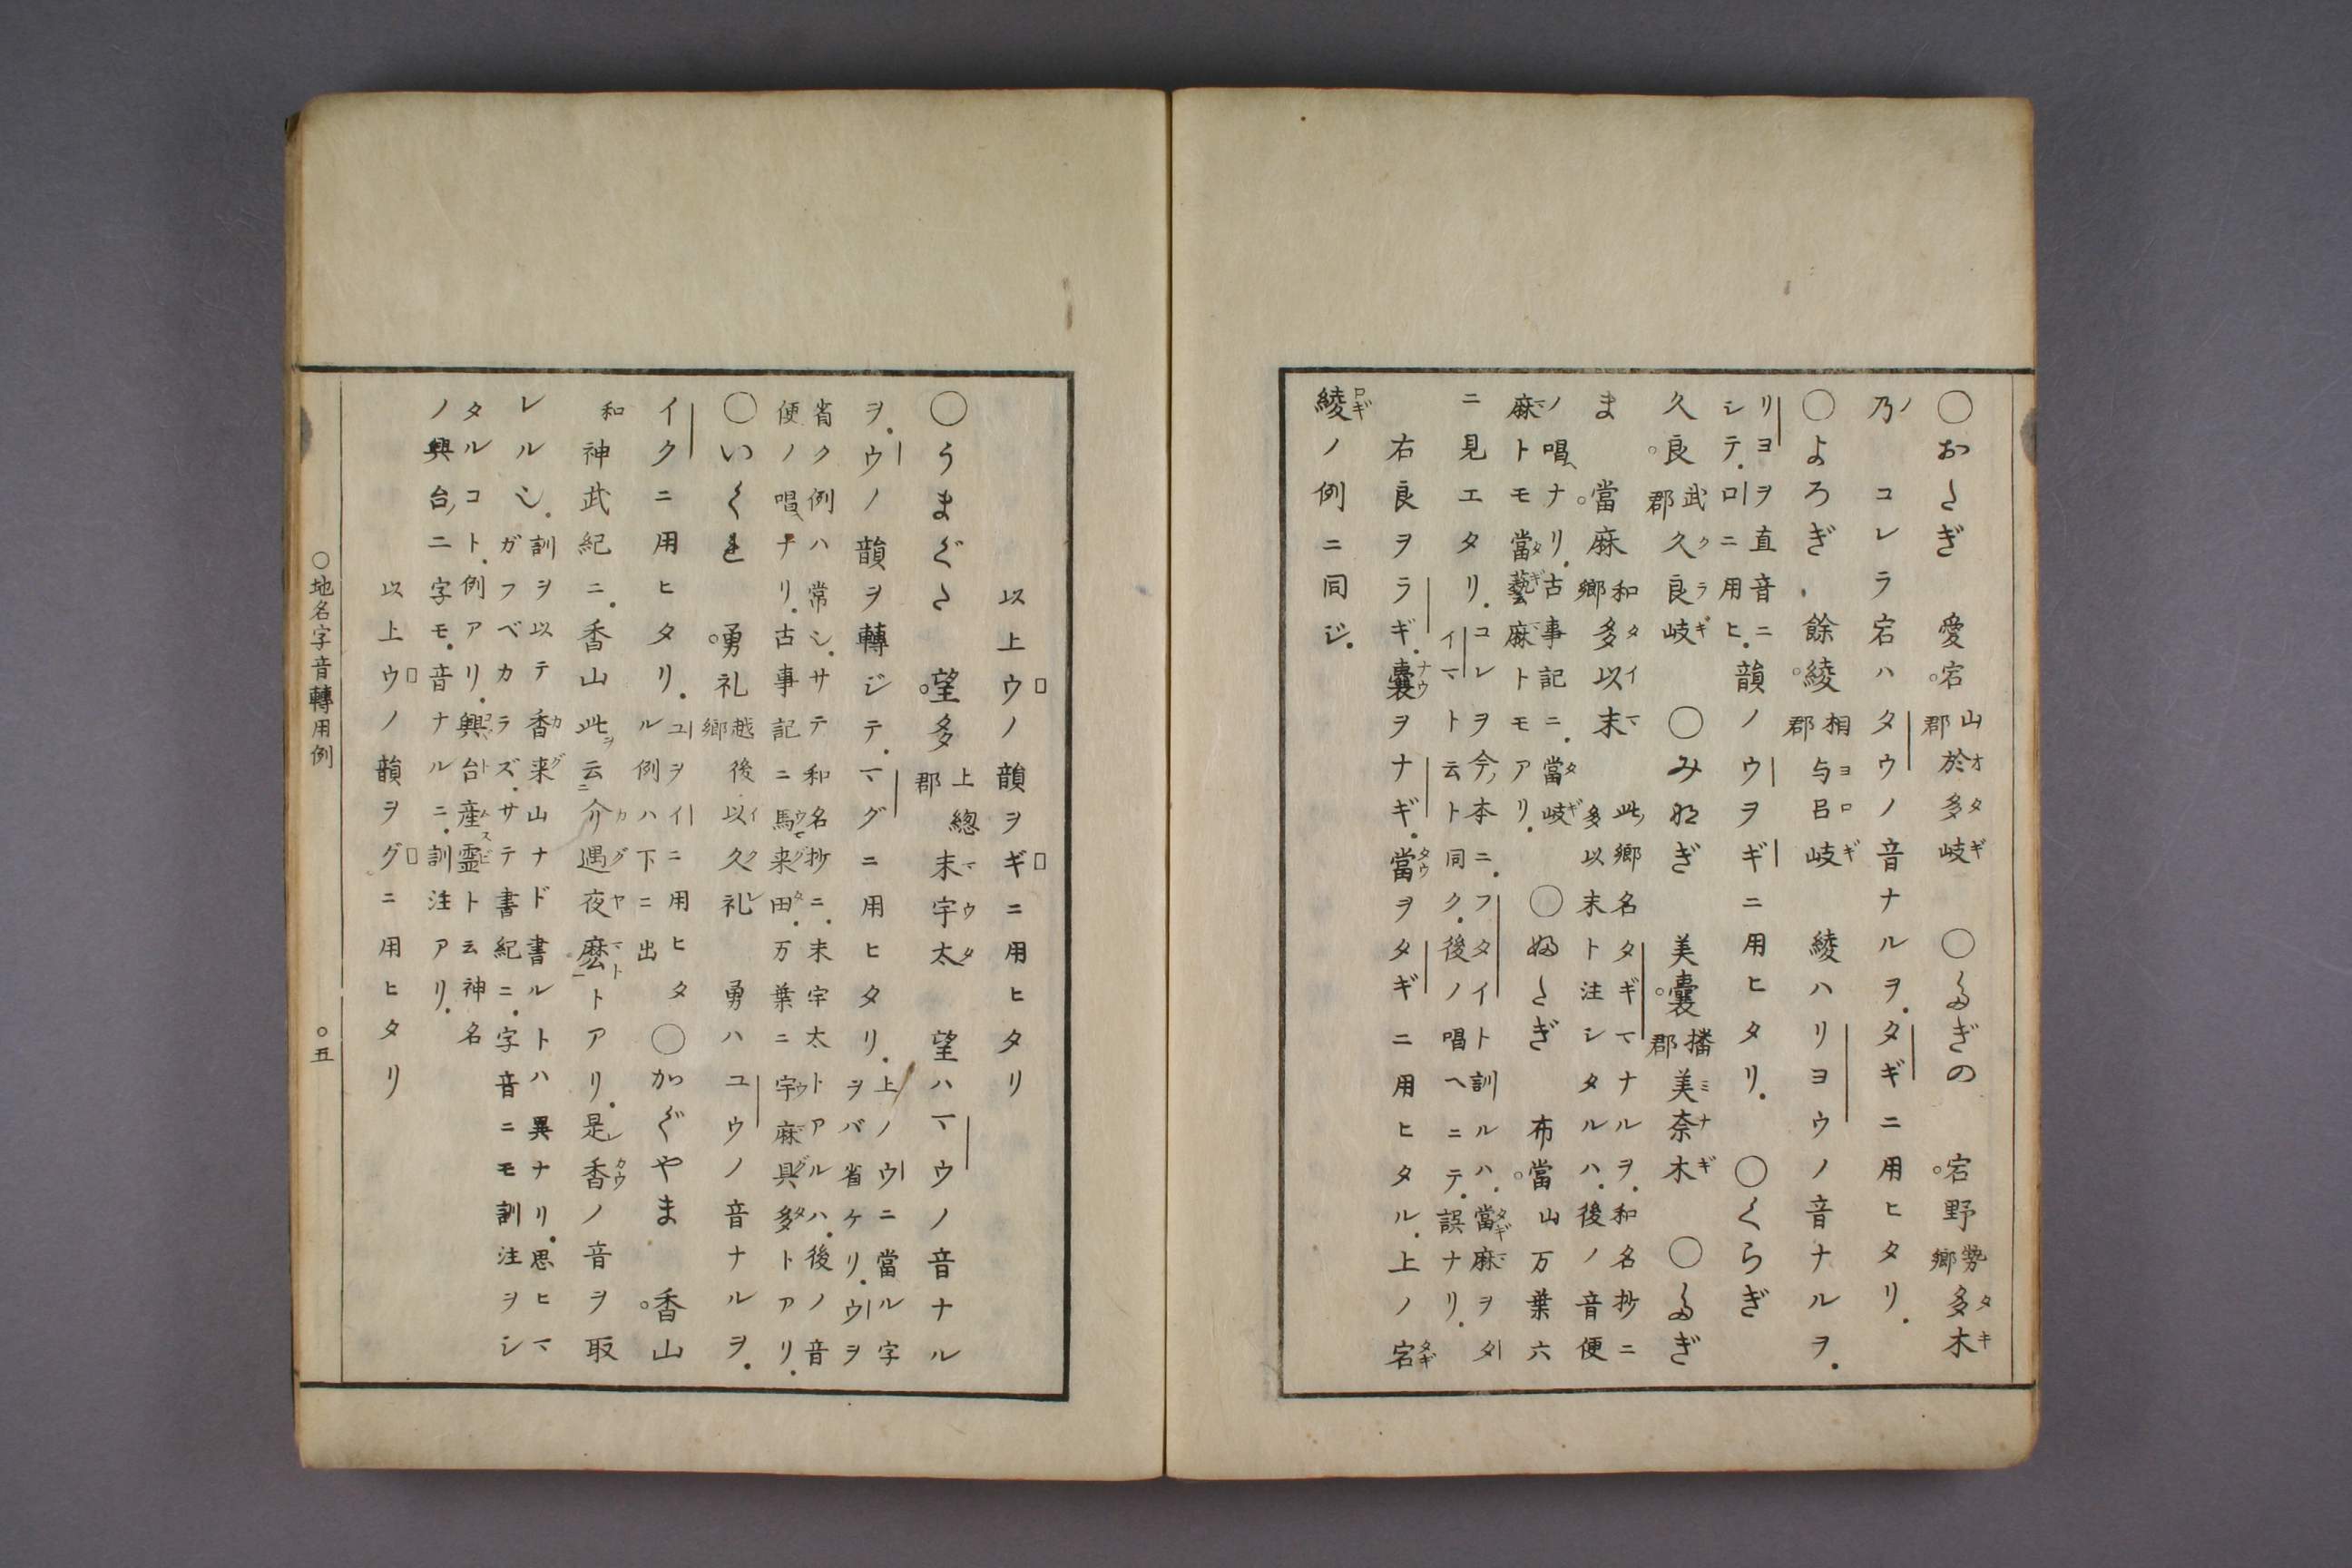 〇おたぎ 愛宕 山郡 於多岐 〇たぎの 宕野 勢郷 多木
乃 コレラ宕ハタウノ音ナルヲ.タギニ用ヒタリ.
〇よろぎ 餘綾 相郡 与呂岐 綾ハリヨウノ音ナルヲ.
リヨヲ直音ニ
シテ.ロニ用ヒ.韻ノウヲギニ用ヒタリ. 〇くらぎ
久良 武郡 久良岐 〇みなぎ 美嚢 播郡 美奈木 〇たぎ
ま 當麻 和郷 多以末 此ノ郷名タギマナルヲ.和名抄ニ
多以末ト注シタルハ.後ノ音便
ノ唱ヘナリ.古事記ニ.當岐
麻トモ當藝麻トモモアリ. 〇ふたぎ 布當 山万葉六
ニ見エタリ. コレヲ今ノ本ニ.フタイト訓ルハ.當麻ヲタ
イマト云ト同ク.後ノ唱ヘニテ.誤ナリ.
右良ヲラギ.嚢ヲナギ.當ヲタギニ用ヒタル.上ノ宕
綾ノ例ニ同ジ.
以上ウノ韻ヲギニ用ヒタリ
〇うまぐた 望多 上總郡 末宇太 望ハマウノ音ナル
ヲ.ウノ韻ヲ轉ジテ.マグニ用ヒタリ. 上ノウニ當ル字
ヲバ省ケリ.ウヲ
省ク例ハ常シ.サテ和名抄ニ.末宇太トアルハ.後ノ音
便ノ唱ヘナリ.古事記ニ馬来田.万葉ニ宇麻具多トアリ.
〇いくれ 勇礼 越後郷 以久礼 勇ハユウノ音ナルヲ.
イクニ用ヒタリ. ユヲイニ用ヒタ
ル例ハ下ニ出 〇かぐやま 香山
和 神武紀ニ.香山此云介遇夜麽トアリ.是香ノ音ヲ取
レルシ.訓ヲ以テ香来山ナド書ルトハ異ナリ.思ヒマ
ガフベカラズ.サテ書紀ニ.字音ニモ訓注ヲシ
タルコト.例アリ.興台産霊ト云神名
ノ興台ノ二字モ.音ナルニ.訓注アリ.
以上ウノ韻ヲグニ用ヒタリ
〇地名字音轉用例 〇五